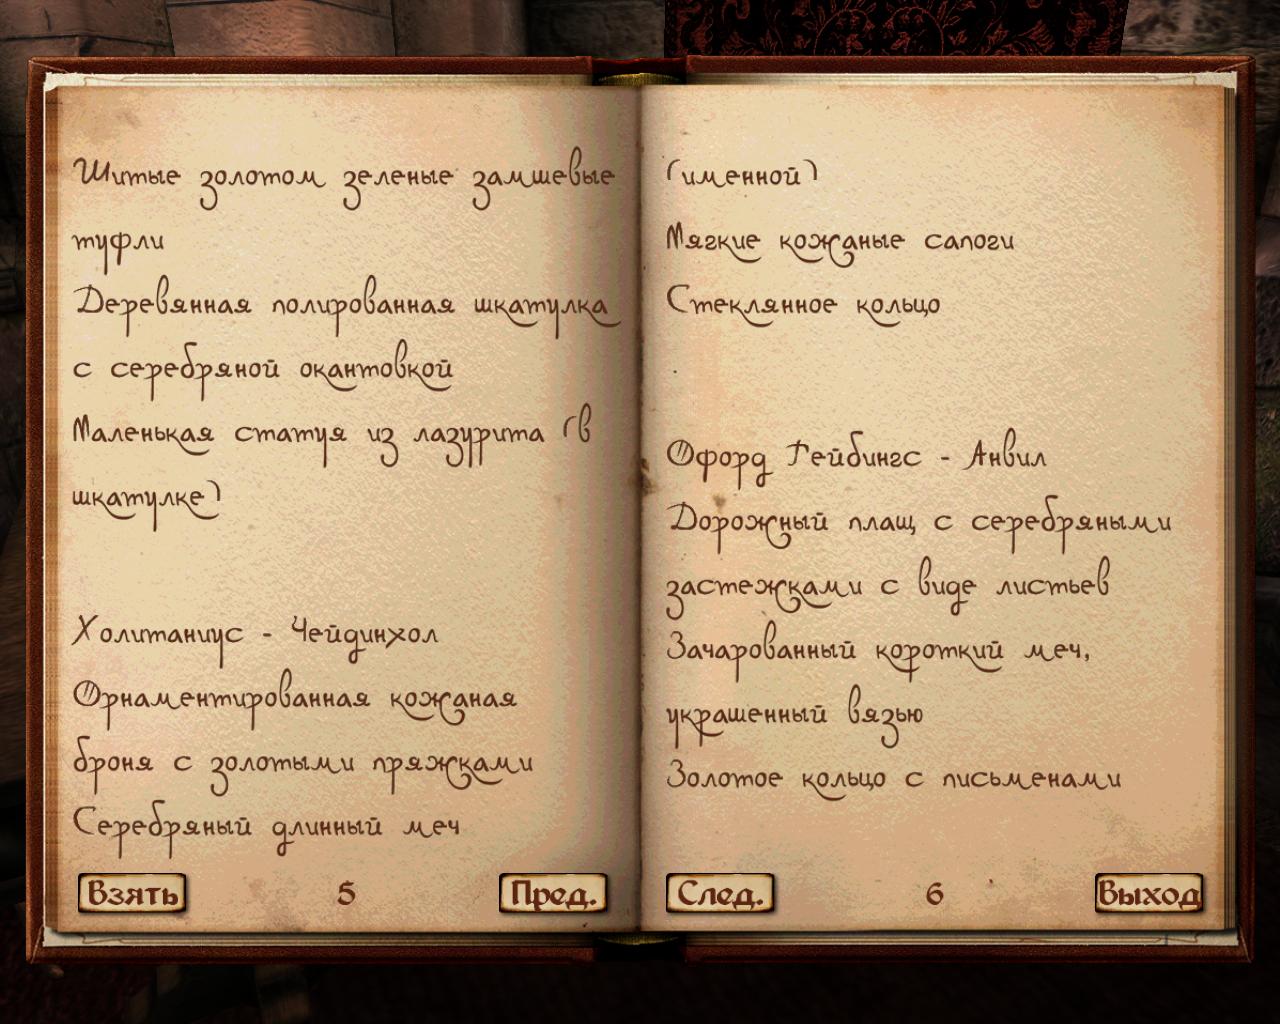 Шитые золотом зеленые замшевые
туфли
Деревянная полированная шкатулка
с серебряной окантовкой
Маленькая статуя из лазурита (в
шкатулке)
Холитаниус - Чейдинхол
Орнаментированная кожаная
броня с золотыми пряжками
Серебряный длинный меч
Взять 5 Пред.
(именной)
Мягкие кожаные сапоги
Стеклянное кольцо
Офорд Гейбингс - Анвил
Дорожный плащ с серебряными
застежками с виде листьев
Зачарованный короткий меч,
украшенный вязью
Золотое кольцо с письменами
След. 6 Выход